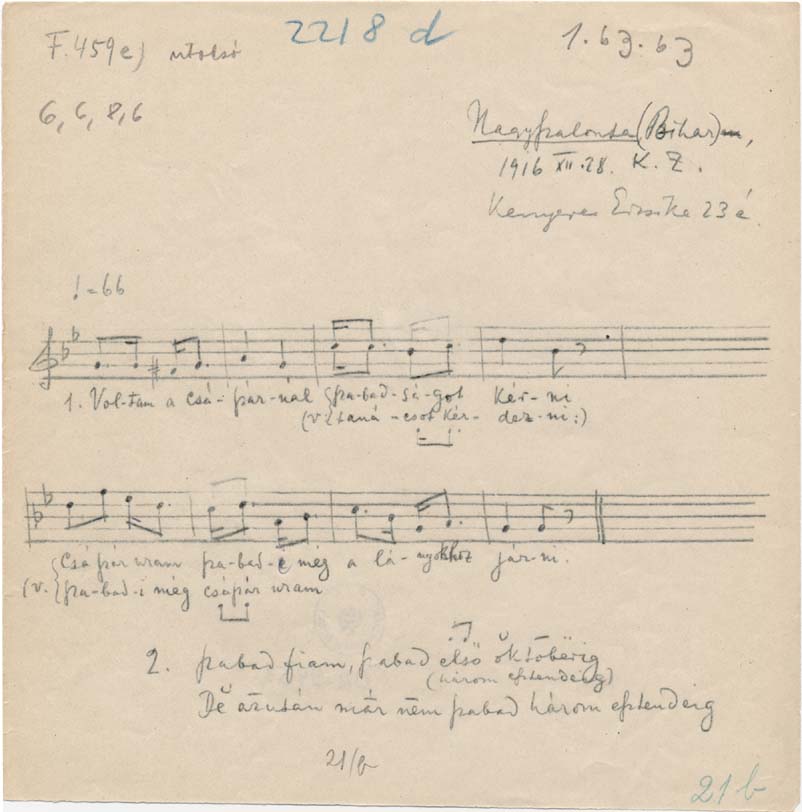 F. 459e) utolsó 2218 d 1. 63. 63
6, 6, 8, 6
Nagyszalonta (Bihar),
1916 XII. 28. K. Z.
Kenyeres Erzsike 23 é.
♩ = 66
1. Vol-tam a csá-szár-nál szabad-sá-got kér-ni
(v. taná-csot kér-dez-ni:)
Császár uram sza-bad-é még a lá-nyokhoz jár-ni.
(v. sza-bad-i még császár uram
2. szabad fiam, szabad első októbërig
(három esztendeig)
Dĕ ázután már nëm szabad három esztendeig
21/b
21 b